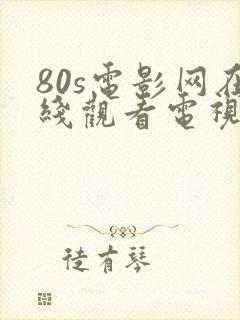 80s电影网在
綫觀看電視
徒有琴